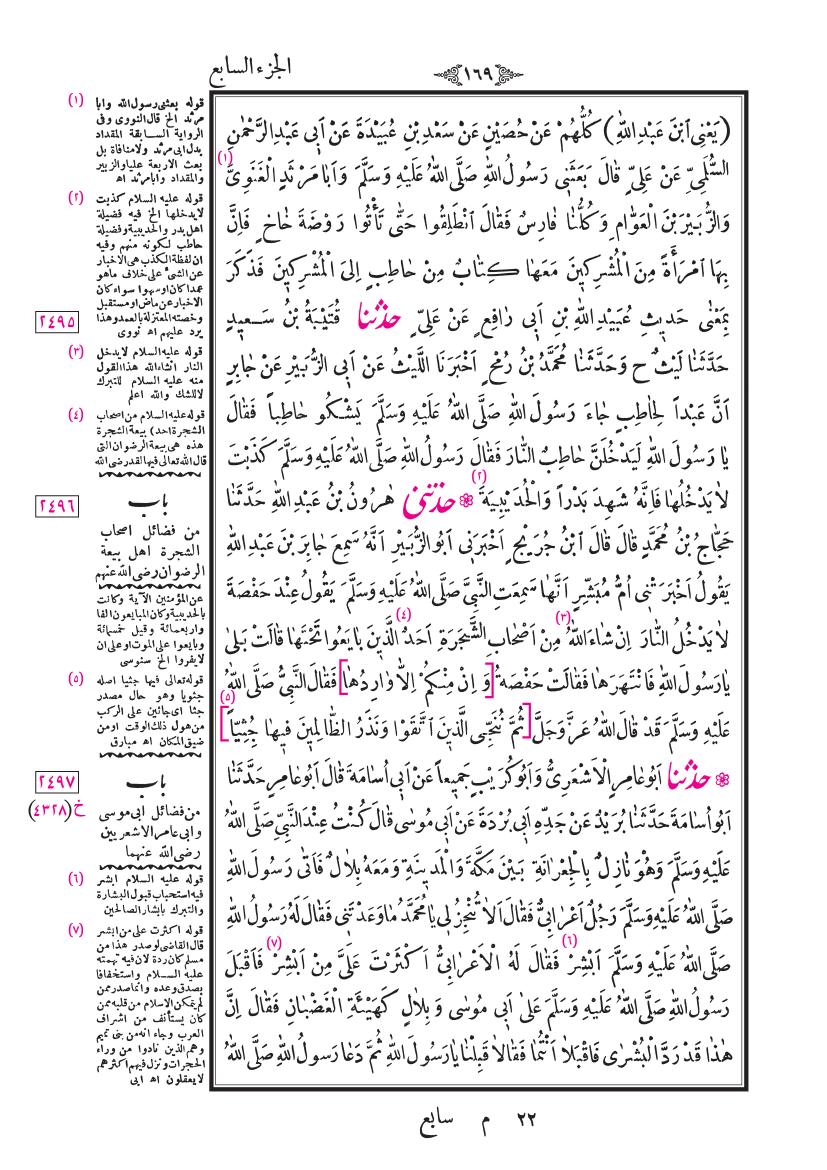 الجزء السابع
١٦٩
(يَعْنِى ابْنَ عَبْدِ اللّٰهِ) كُلُّهُمْ عَنْ حُصَيْنٍ عَنْ سَعْدِ بْنِ عُبَيْدَةَ عَنْ اَبِى عَبْدِ الرَّحْمٰنِ
السُّلَمِىِّ عَنْ عَلِىٍّ قَالَ بَعَثَنِى رَسُولُ اللّٰهِ صَلَّى اللّٰهُ عَلَيْهِ وَسَلَّمَ وَاَبَا مَرْثَدٍ الْغَنَوِىَّ (١)
وَالزُّبَيْرَ بْنَ الْعَوَّامِ وَكُلُّنَا فَارِسٌ فَقَالَ انْطَلِقُوا حَتّٰى تَأْتُوا رَوْضَةَ خَاخٍ فَاِنَّ
بِهَا امْرَأَةً مِنَ الْمُشْرِكِينَ مَعَهَا كِتَابٌ مِنْ حَاطِبٍ اِلَى الْمُشْرِكِينَ فَذَكَرَ
بِمَعْنٰى حَدِيثِ عُبَيْدِ اللّٰهِ بْنِ اَبِى رَافِعٍ عَنْ عَلِىٍّ حدثنا قُتَيْبَةُ بْنُ سَعِيدٍ
حَدَّثَنَا لَيْثٌ ح وَحَدَّثَنَا مُحَمَّدُ بْنُ رُمْحٍ اَخْبَرَنَا اللَّيْثُ عَنْ اَبِى الزُّبَيْرِ عَنْ جَابِرٍ
اَنَّ عَبْداً لِحَاطِبٍ جَاءَ رَسُولَ اللّٰهِ صَلَّى اللّٰهُ عَلَيْهِ وَسَلَّمَ يَشْكُو حَاطِباً فَقَالَ
يَا رَسُولَ اللّٰهِ لَيَدْخُلَنَّ حَاطِبٌ النَّارَ فَقَالَ رَسُولُ اللّٰهِ صَلَّى اللّٰهُ عَلَيْهِ وَسَلَّمَ كَذَبْتَ
لَا يَدْخُلُهَا فَاِنَّهُ شَهِدَ بَدْراً وَالْحُدَيْبِيَةَ (٢) حدثنى هٰرُونُ بْنُ عَبْدِ اللّٰهِ حَدَّثَنَا
حَجَّاجُ بْنُ مُحَمَّدٍ قَالَ قَالَ ابْنُ جُرَيْجٍ اَخْبَرَنِى اَبُو الزُّبَيْرِ اَنَّهُ سَمِعَ جَابِرَ بْنَ عَبْدِ اللّٰهِ
يَقُولُ اَخْبَرَتْنِى اُمُّ مُبَشِّرٍ اَنَّهَا سَمِعَتِ النَّبِىَّ صَلَّى اللّٰهُ عَلَيْهِ وَسَلَّمَ يَقُولُ عِنْدَ حَفْصَةَ
لَا يَدْخُلُ النَّارَ اِنْ شَاءَ اللّٰهُ (٣) مِنْ اَصْحَابِ الشَّجَرَةِ (٤) اَحَدٌ الَّذِينَ بَايَعُوا تَحْتَهَا قَالَتْ بَلٰى
يَا رَسُولَ اللّٰهِ فَانْتَهَرَهَا فَقَالَتْ حَفْصَةُ [وَاِنْ مِنْكُمْ اِلَّا وَارِدُهَا] فَقَالَ النَّبِىُّ صَلَّى اللّٰهُ
عَلَيْهِ وَسَلَّمَ قَدْ قَالَ اللّٰهُ عَزَّ وَجَلَّ [ثُمَّ نُنَجِّى الَّذِينَ اتَّقَوْا وَنَذَرُ الظَّالِمِينَ فِيهَا جُثِيّاً] (٥)
حدثنا اَبُو عَامِرٍ الْاَشْعَرِىُّ وَاَبُو كُرَيْبٍ جَمِيعاً عَنْ اَبِى اُسَامَةَ قَالَ اَبُو عَامِرٍ حَدَّثَنَا
اَبُو اُسَامَةَ حَدَّثَنَا بُرَيْدٌ عَنْ جَدِّهِ اَبِى بُرْدَةَ عَنْ اَبِى مُوسٰى قَالَ كُنْتُ عِنْدَ النَّبِىِّ صَلَّى اللّٰهُ
عَلَيْهِ وَسَلَّمَ وَهُوَ نَازِلٌ بِالْجِعْرَانَةِ بَيْنَ مَكَّةَ وَالْمَدِينَةِ وَمَعَهُ بِلَالٌ فَاَتٰى رَسُولَ اللّٰهِ
صَلَّى اللّٰهُ عَلَيْهِ وَسَلَّمَ رَجُلٌ اَعْرَابِىٌّ فَقَالَ اَلَا تُنْجِزُ لِى يَا مُحَمَّدُ مَا وَعَدْتَنِى فَقَالَ لَهُ رَسُولُ اللّٰهِ
صَلَّى اللّٰهُ عَلَيْهِ وَسَلَّمَ اَبْشِرْ (٦) فَقَالَ لَهُ الْاَعْرَابِىُّ اَكْثَرْتَ عَلَىَّ مِنْ اَبْشِرْ (٧) فَاَقْبَلَ
رَسُولُ اللّٰهِ صَلَّى اللّٰهُ عَلَيْهِ وَسَلَّمَ عَلٰى اَبِى مُوسٰى وَبِلَالٍ كَهَيْئَةِ الْغَضْبَانِ فَقَالَ اِنَّ
هٰذَا قَدْ رَدَّ الْبُشْرٰى فَاقْبَلَا اَنْتُمَا فَقَالَا قَبِلْنَا يَا رَسُولَ اللّٰهِ ثُمَّ دَعَا رَسُولُ اللّٰهِ صَلَّى اللّٰهُ
(١) قوله بعثنى رسول الله وابا
مرثد الخ قال النووى وفى
الرواية السابقة المقداد
بدل ابى مرثد ولا منافاة بل
بعث الاربعة عليا والزبير
والمقداد وابا مرثد اه
(٢) قوله عليه السلام كذبت
لا يدخلها الخ فيه فضيلة
اهل بدر والحديبية وفضيلة
حاطب لكونه منهم وفيه
ان لفظة الكذب هى الاخبار
عن الشئ على خلاف ما هو
عمدا كان او سهوا سواء كان
الاخبار عن ماض او مستقبل
وخصته المعتزلة بالعمد وهذا
يرد عليهم اه نووى
٢٤٩٥
(٣) قوله عليه السلام لا يدخل
النار انشاء الله هذا القول
منه عليه السلام للتبرك
لا للشك والله اعلم
(٤) قوله عليه السلام من اصحاب
الشجرة احد) بيعة الشجرة
هذه هى بيعة الرضوان التى
قال الله تعالى فيها لقد رضى الله
٢٤٩٦
باب
من فضائل اصحاب
الشجرة اهل بيعة
الرضوان رضى الله عنهم
عن المؤمنين الآية وكانت
بالحديبية وكان المبايعون الفا
واربعمائة وقيل خمسمائة
وبايعوا على الموت او على ان
لا يفروا الخ سنوسى
(٥) قوله تعالى فيها جثيا اصله
جثويا وهو حال مصدر
جثا اى جاثين على الركب
من هول ذلك الوقت او من
ضيق المكان اه مبارق
٢٤٩٧
خ (٤٣٢٨)
باب
من فضائل ابى موسى
وابى عامر الاشعريين
رضى الله عنهما
(٦) قوله عليه السلام ابشر
فيه استحباب قبول البشارة
والتبرك بابشار الصالحين
(٧) قوله اكثرت على من ابشر
قال القاضى لو صدر هذا من
مسلم كان ردة لان فيه تهمته
عليه السلام واستخفافا
بصدق وعده وانما صدر ممن
لم يتمكن الاسلام من قلبه ممن
كان يستألف من اشراف
العرب وجاء انه من بنى تميم
وهم الذين نادوا من وراء
الحجرات ونزل فيهم اكثرهم
لا يعقلون اه ابى
٢٢ م سابع